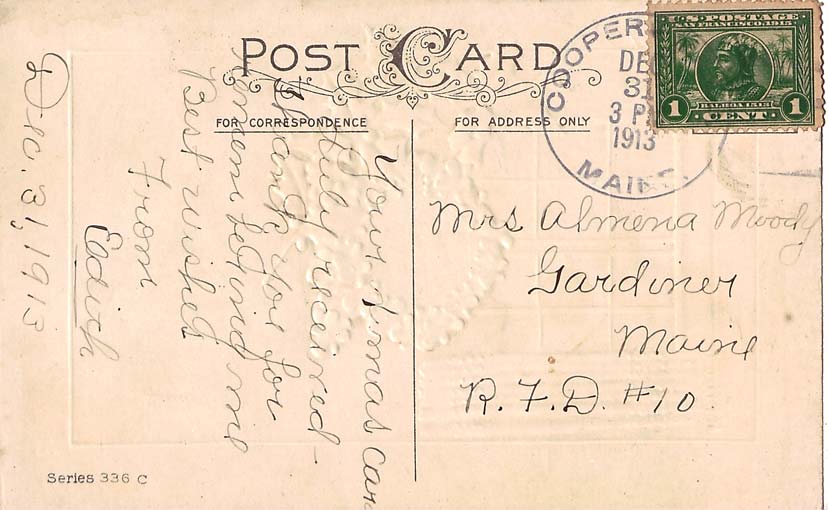 POST CARD
FOR CORRESPONDENCE
FOR ADDRESS ONLY
COOPER
DE
31
3 P
1913
MAINE.
U.S. POSTAGE
SAN FRANCISCO 1915
BALBOA 1513
1 CENT 1
Mrs Almena Moody
Gardiner
Maine
R.F.D. #10
Your Xmas car
duly received -
Thank you for
remembering me
Best wishes
From
Edith
Dec. 31, 1913
Series 336 C